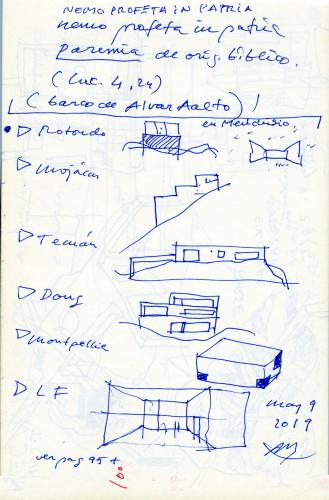 NEMO PROFETA IN PATRIA
nemo profeta in patria
Paremia de orig. bíblico.
(Luc. 4, 24)
(barco de Alvar Aalto)!
▷ Rotondo
▷ Mojácar
▷ Temán
▷ Doug
▷ Montpellie
▷ LF
may 9
2019
ver pag 95 +
100